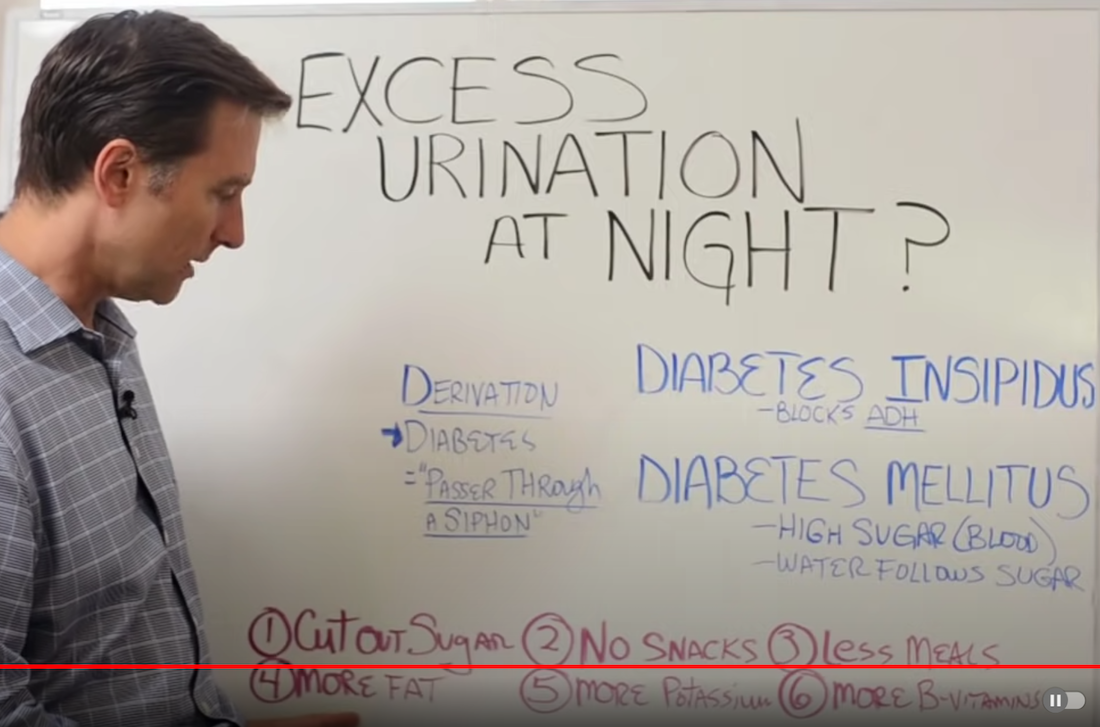 EXCESS
URINATION
AT NIGHT?
DERIVATION
→DIABETES
="PASSER THROUGH
A SIPHON"
DIABETES INSIPIDUS
-BLOCKS ADH
DIABETES MELLITUS
-HIGH SUGAR (BLOOD)
-WATER FOLLOWS SUGAR
① Cut out Sugar ② No SNACKS ③ Less MEALS
④ MORE FAT ⑤ MORE Potassium ⑥ MORE B-VITAMINS